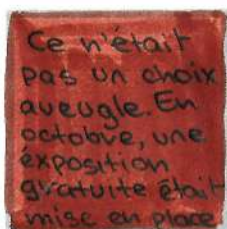 Ce n'était
pas un choix
aveugle. En
octobre, une
éxposition
gratuite était
mise en place